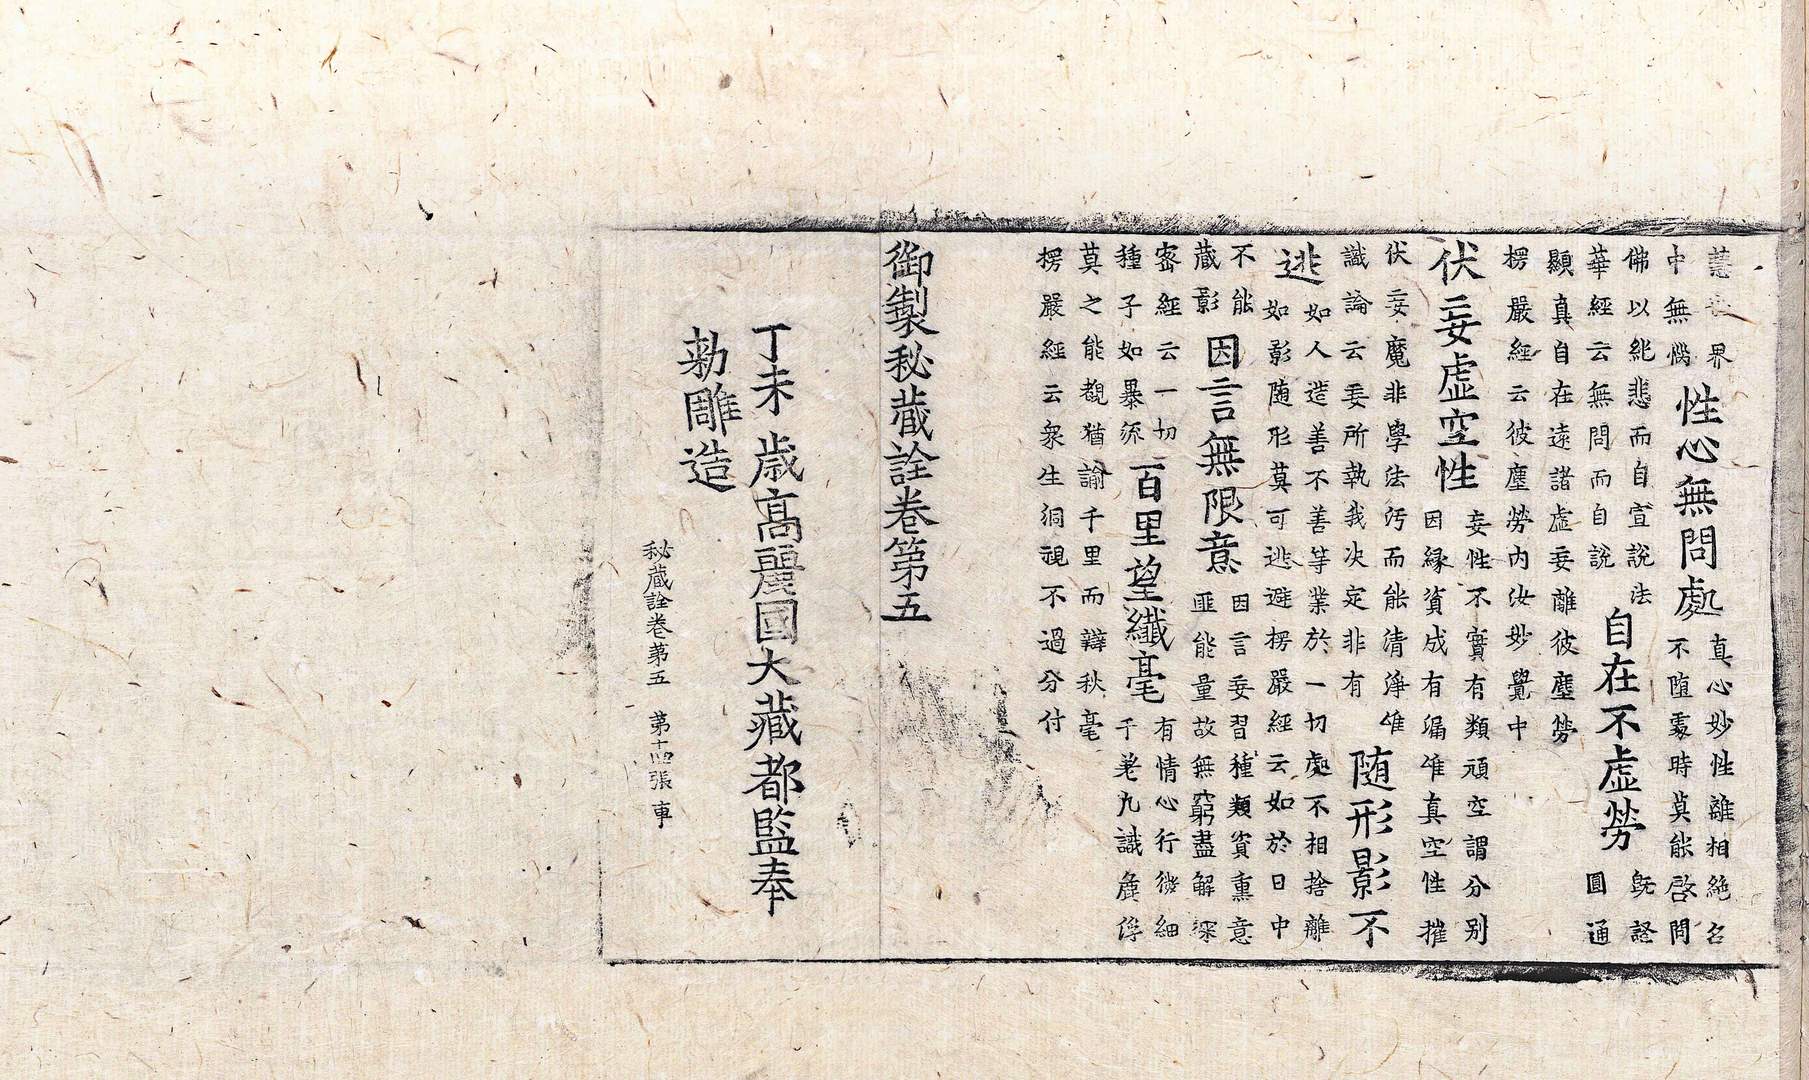 世界
中無惱
性心無問處
真心妙性離相絶名
不堕處時莫能啓問
佛以能悲而自宣說法
華經云無問而自說
自在不虛勞
旣證
圓通
顯真自在遠諸虛妄離彼塵勞
楞嚴經云彼塵勞內汝妙覺中
伏妄虛空性
妄性不實有類頑空謂分别
因緣資成有漏唯真空性摧
伏妄魔非學法汚而能清淨唯
識論云妄所執我决定非有
随形影不
逃
如人造善不善等業於一切處不相捨離
如影随形莫可逃避楞嚴經云如於日中
不能
蔵影
因言無限意
因言妄習種類資熏意
匪能量故無窮盡解深
密經云一切
種子如暴流
百里望纖毫
有情心行微細
千差九識麁浮
莫之能覩猶諭千里而辯秋毫
楞嚴經云衆生洞視不過分付
御製秘蔵詮卷第五
丁未歳高麗國大藏都監奉
勑雕造
秘蔵詮卷第五 第十四張 車